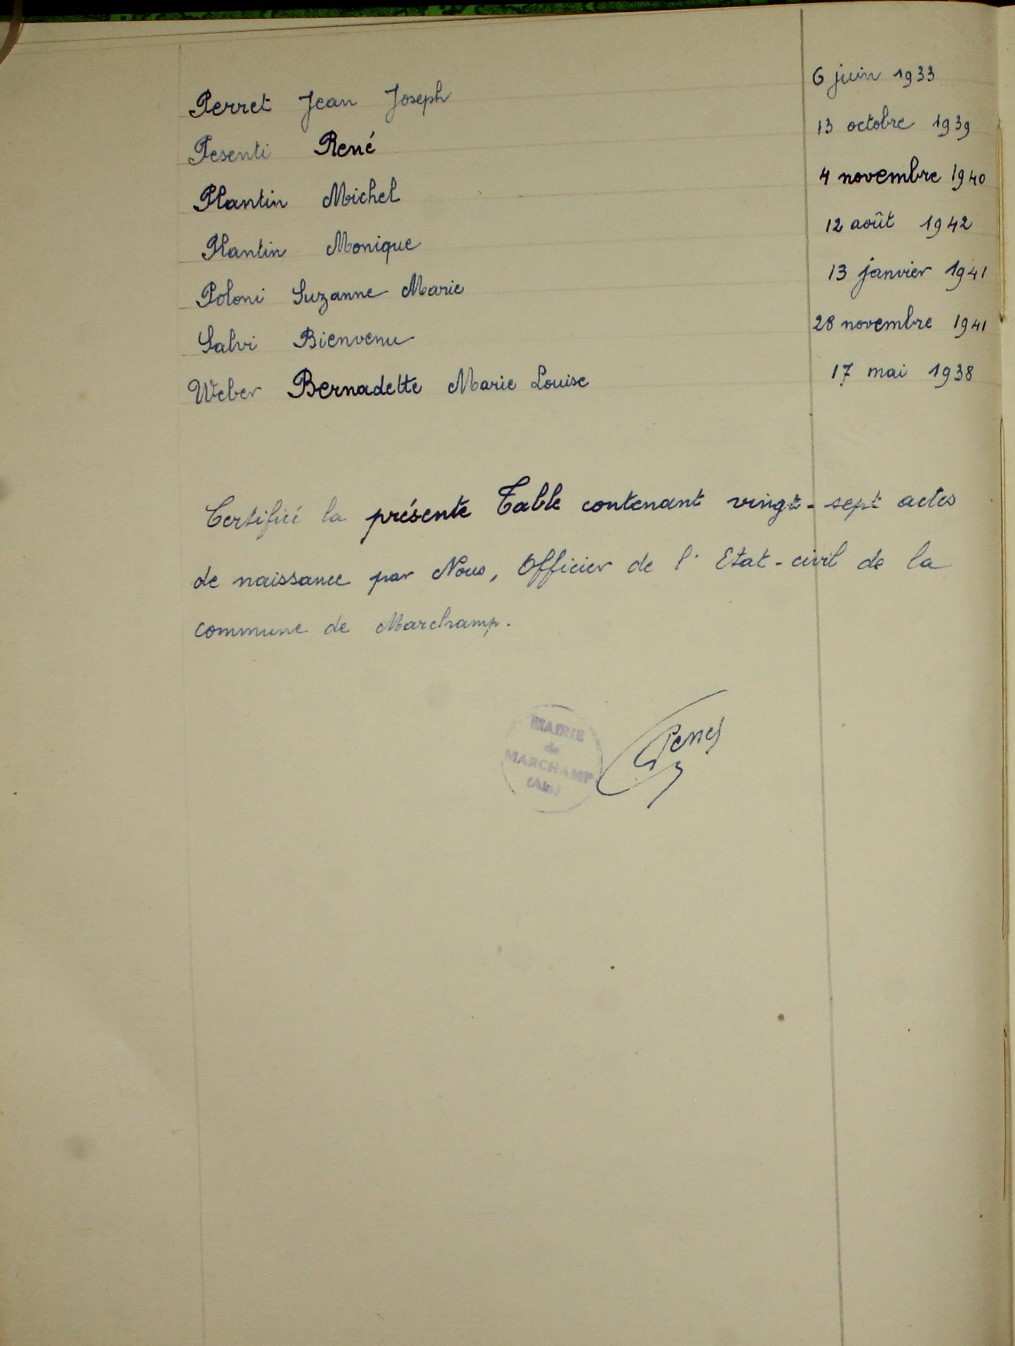 Perret Jean Joseph 6 juin 1933
Pesenti René 13 octobre 1939
Plantin Michel 4 novembre 1940
Plantin Monique 12 août 1942
Poloni Suzanne Marie 13 janvier 1941
Salvi Bienvenu 28 novembre 1941
Weber Bernadette Marie Louise 17 mai 1938
Certifié la présente Table contenant vingt-sept actes
de naissance par Nous, Officier de l'Etat-civil de la
commune de Marchamp.
MAIRIE
de
MARCHAMP
(Ain)